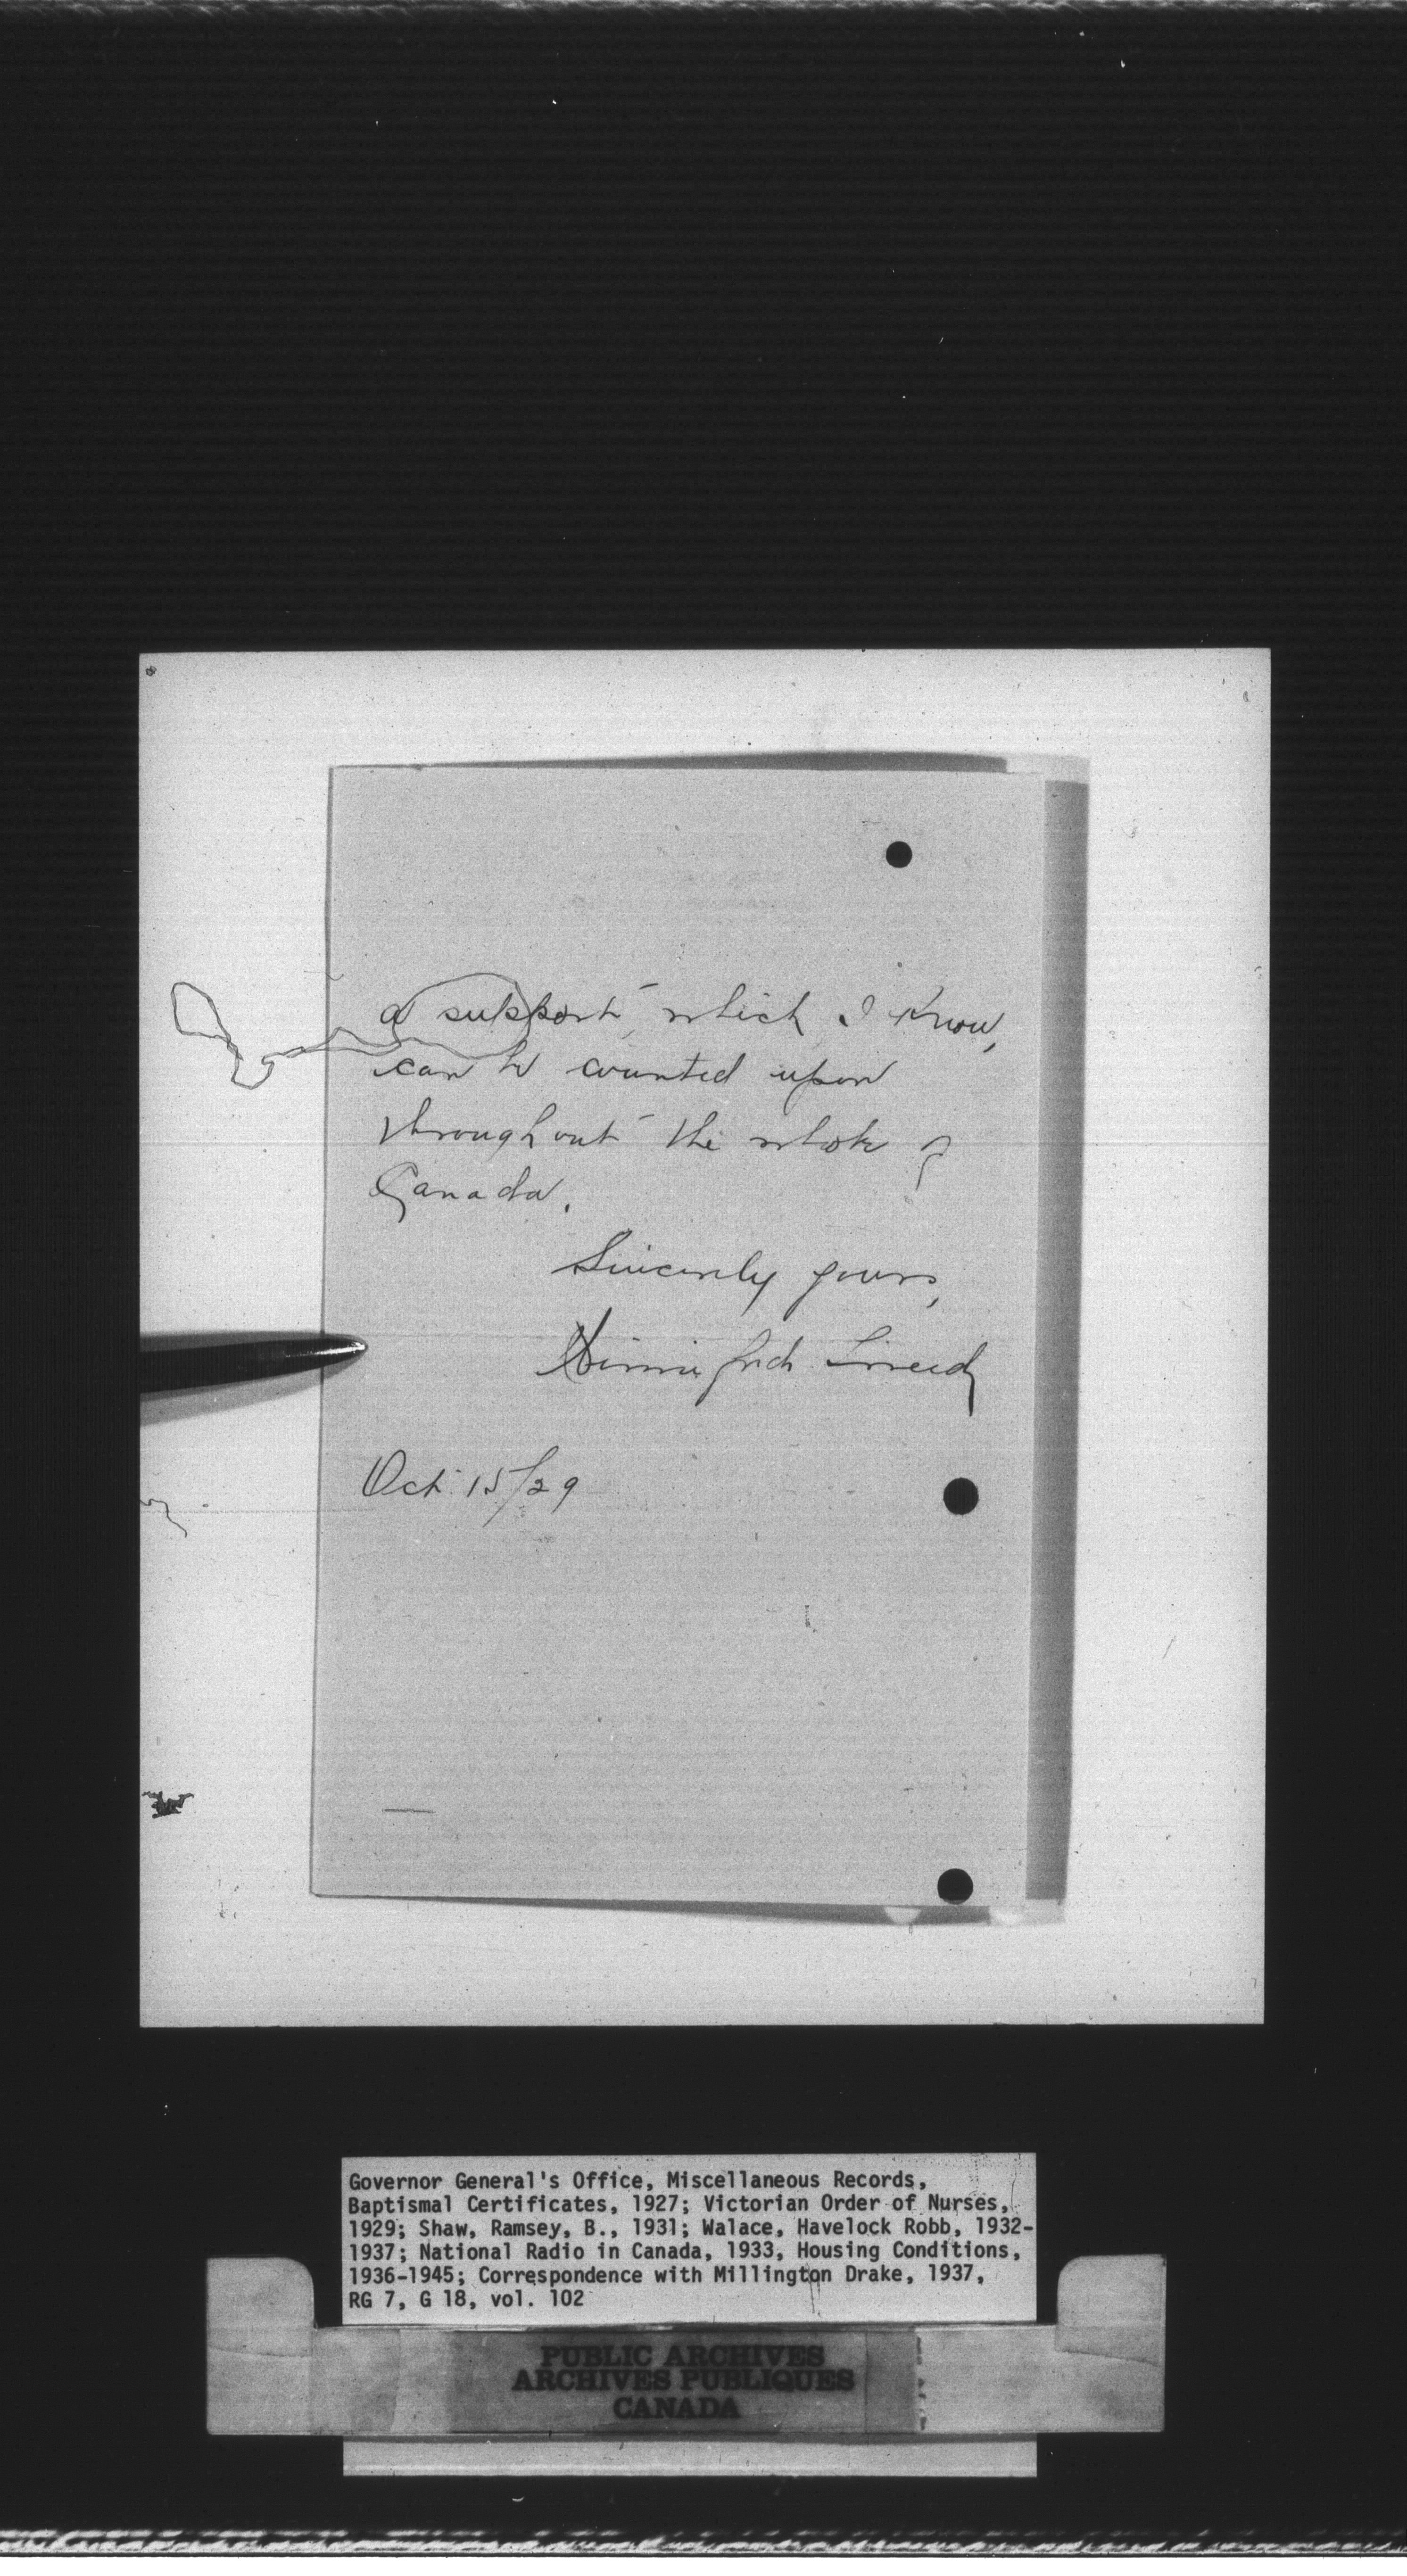 a support which I know,
can be counted upon
throughout the whole of
Canada.
Sincerely yours,
Oct. 15/29
Governor General's Office, Miscellaneous Records,
Baptismal Certificates, 1927; Victorian Order of Nurses,
1929; Shaw, Ramsey, B., 1931; Walace, Havelock Robb, 1932-
1937; National Radio in Canada, 1933, Housing Conditions,
1936-1945; Correspondence with Millington Drake, 1937,
RG 7, G 18, vol. 102
PUBLIC ARCHIVES
ARCHIVES PUBLIQUES
CANADA